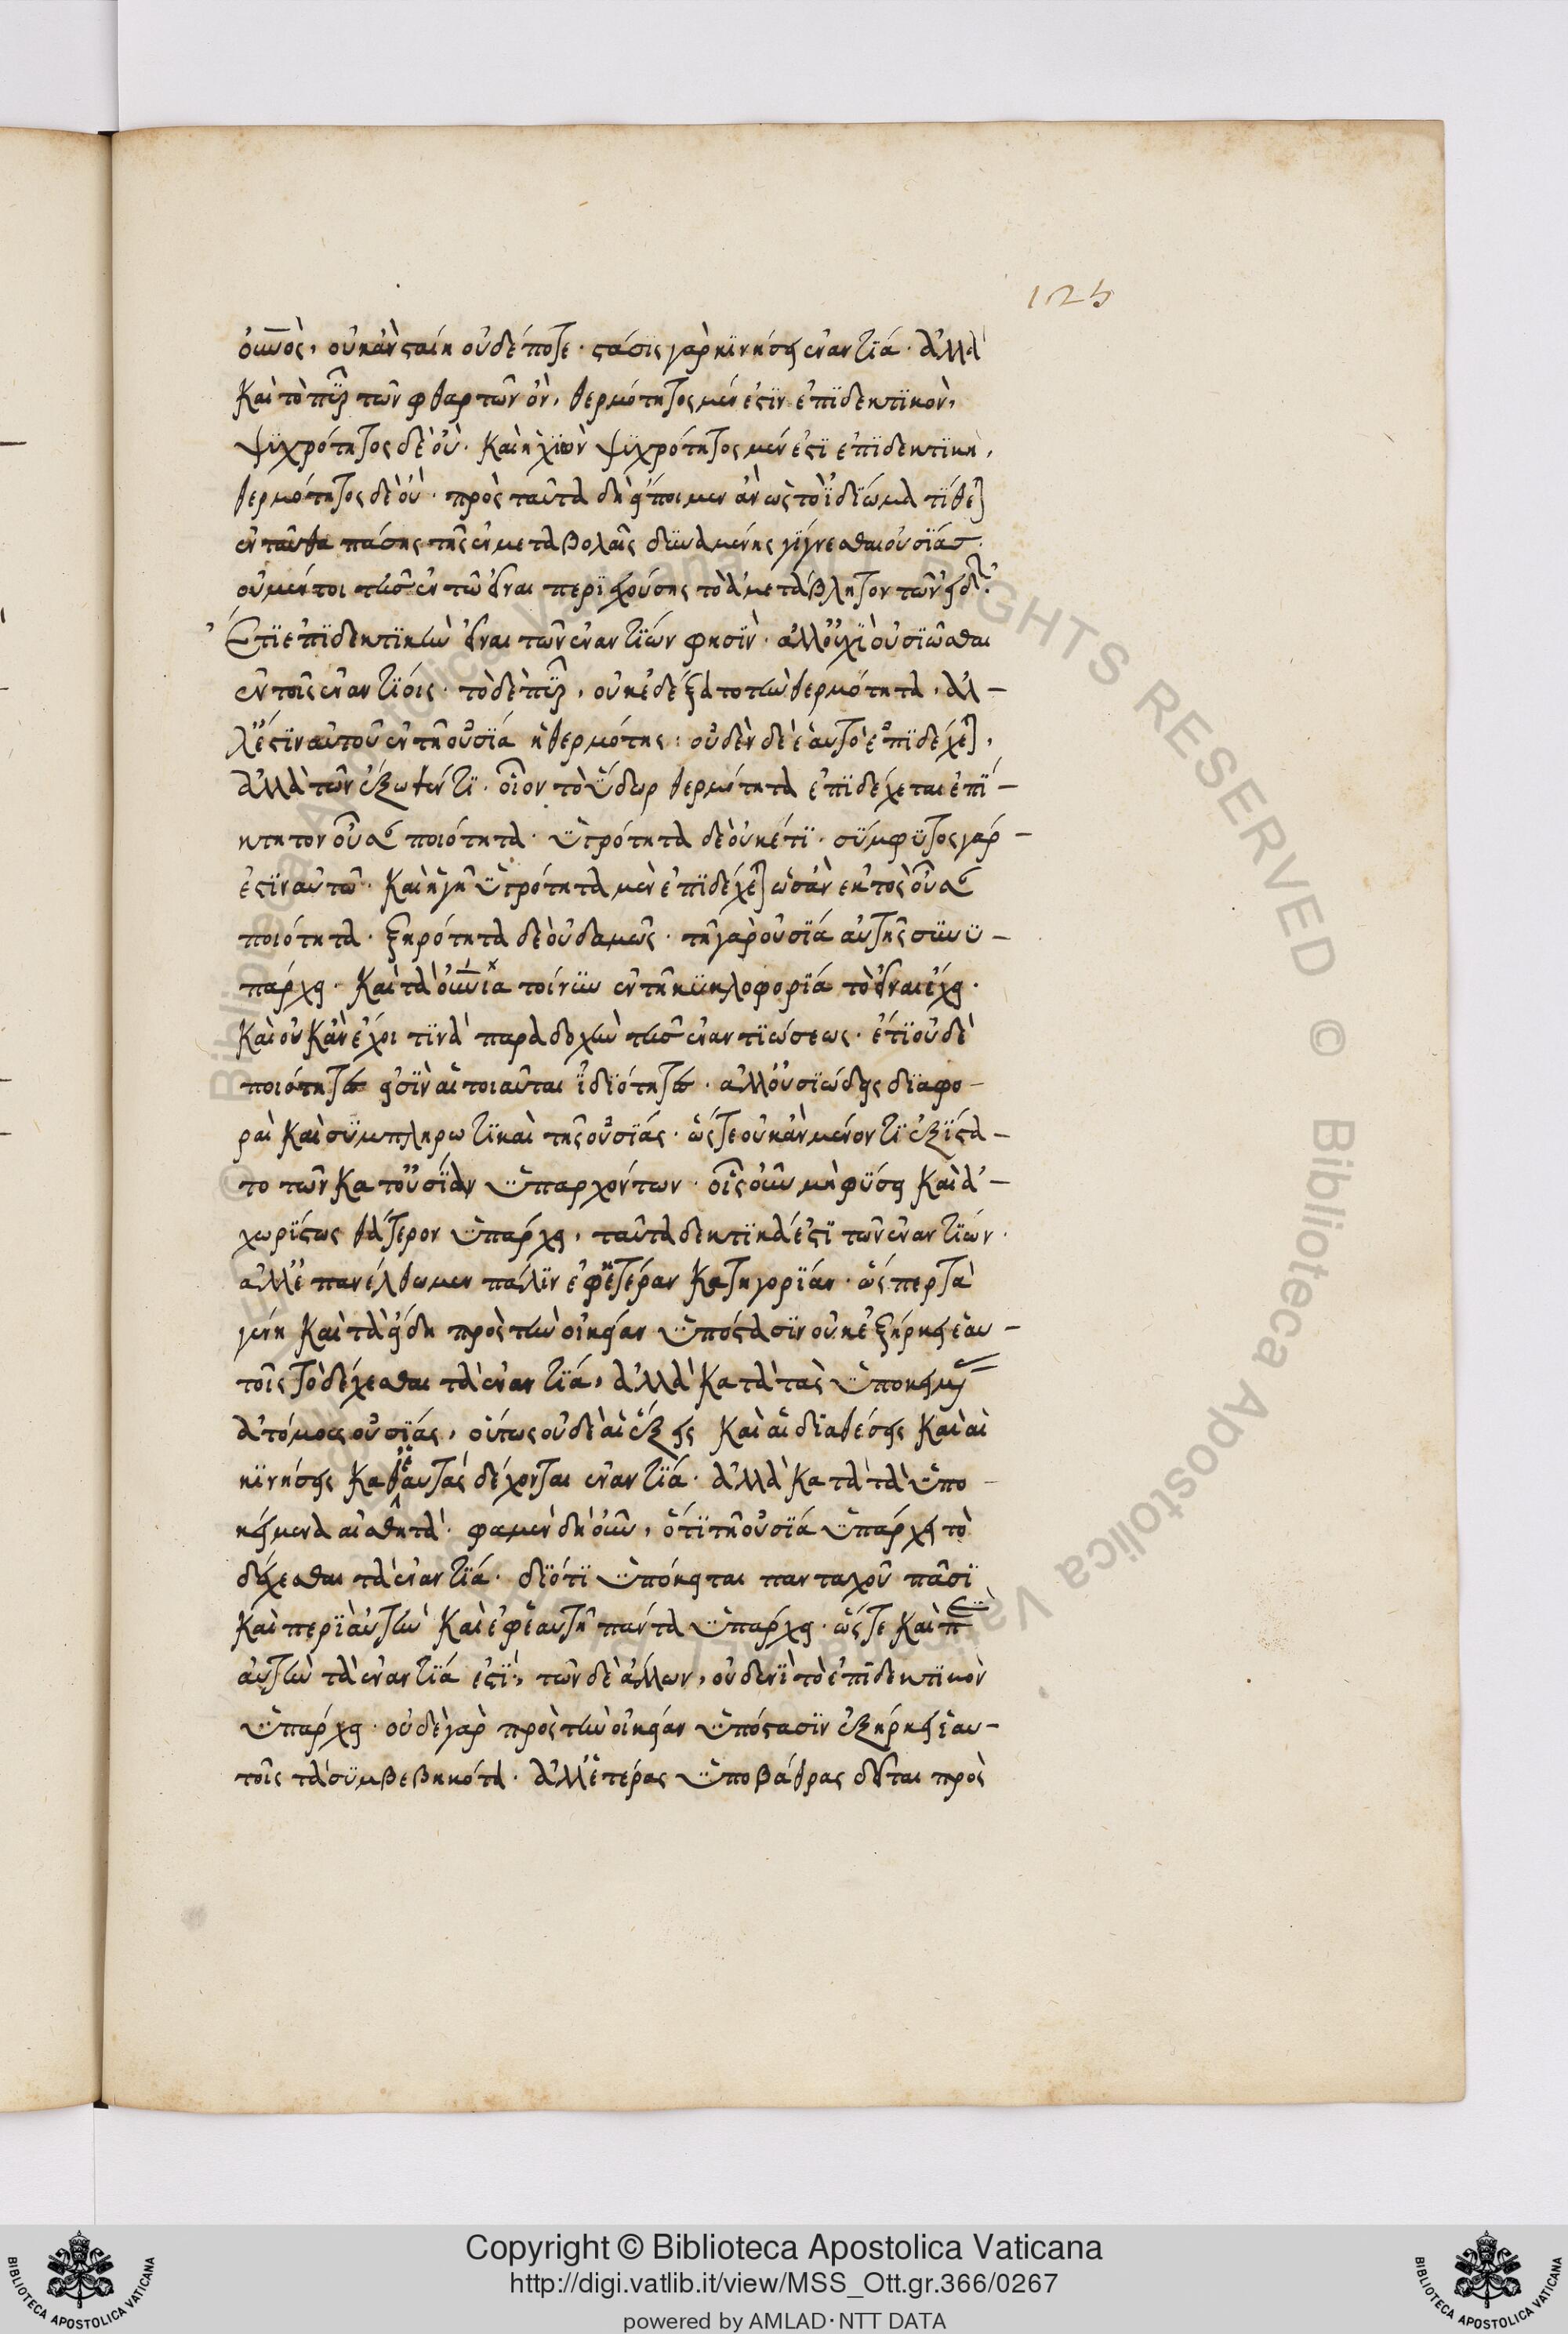 125
οὐνὸς, οὐκ ἂν σταίη οὐδέποτε· στάσϊς γὰρ κϊνήσει ἐναντΐα· ἀλλὰ
καὶ τὸ πῦρ τῶν φθαρτῶν ὂν, θερμότητος μέν ἐστϊν ἐπϊδεκτϊκὸν,
ψϋχρότητος δὲ οὐ· καὶ ἡ χϊὼν ψϋχρότητος μέν ἐστϊ ἐπϊδεκτϊκὴ,
θερμότητος δὲ οὐ· πρὸς ταῦτα δὴ εἴποιμεν ἂν ὡς τὸ ἰδΐωμα τίθεται
ἐνταῦθα πάσης τῆς ἐν μεταβολαῖς δϋναμένης γίγνεσθαι οὐσΐας·
οὐ μέντοι τῆς ἐν τῷ εἶναι περϊεχούσης τὸ ἀμετάβλητον τῶν εἰδῶν·
Ἔτϊ ἐπϊδεκτϊκὴν εἶναι τῶν ἐναντΐων φησῒν· ἀλλ' οὐχῒ οὐσϊῶσθαι
ἐν τοῖς ἐναντΐοις· τὸ δὲ πῦρ, οὐκ ἐδέξατο τὴν θερμότητα, ἀλ-
λ' ἔστϊν αὐτοῦ ἐν τῇ οὐσΐα ἡ θερμότης· οὐδὲν δὲ ἑαυτὸ ἐπϊδέχεται,
ἀλλὰ τῶν ἔξωθέν τϊ· οἷον τὸ ὕδωρ θερμότητα ἐπϊδέχεται ἐπΐ-
κτητον οὖσαν ποιότητα· ὑγρότητα δὲ οὐκέτϊ· σύμφϋτος γάρ
ἐστϊν αὐτῶ· καὶ ἡ γῆ ὑγρότητα μὲν ἐπϊδέχεται ὡσὰν ἐκτὸς οὖσαν
ποιότητα· ξηρότητα δὲ οὐδαμῶς· τῇ γὰρ οὐσΐα αὐτῆς σϋνϋ-
πάρχει· καὶ τὰ οὐνια τοίνϋν ἐν τῇ κϋκλοφορΐα τὸ εἶναι ἔχει·
καὶ οὐκ ἂν ἔχοι τϊνὰ παραδοχὴν τῆς ἐναντϊώσεως· ἔτϊ οὐδὲ
ποιότητες εἰσῒν αἱ τοιαῦται ἰδϊότητες· ἀλλ' οὐσϊώδεις δϊαφο-
ραὶ καὶ σϋμπληρωτϊκαὶ τῆς οὐσΐας· ὥστε οὐκ ἂν μένοντϊ ἐξΐστα-
το τῶν κατ' οὐσΐαν ὑπαρχόντων· οἷς οὖν μὴ φϋσει καὶ ἀ-
χωρΐστως θάτερον ὑπάρχει, ταῦτα δεκτϊκά ἐστϊ τῶν ἐναντΐων·
ἀλλ' ἐπανέλθωμεν πάλϊν ἐφ' ἑτέραν κατηγορΐαν· ὥσπερ τὰ
γένη καὶ τὰ εἴδη πρὸς τὴν οἰκείαν ὑπόστασϊν οὐκ ἐξήρκει ἑαυ-
τοῖς τὸ δέχεσθαι τὰ ἐναντΐα, ἀλλὰ κατὰ τὰς ὑποκειμένας
ἀτόμους οὐσΐας, οὕτως οὐδὲ αἱ ἕξεις καὶ αἱ δϊαθέσεις καὶ αἱ
κϊνήσεις καθ' ἑαυτὰς δέχονται ἐναντΐα· ἀλλὰ κατὰ τὰ ὑπο-
κείμενα αἰσθητά· φαμὲν δὴ οὖν, ὅτϊ τῇ οὐσΐα ὑπάρχει τὸ
δέχεσθαι τὰ ἐναντΐα· δϊότϊ ὑπόκειται πανταχοῦ πᾶσϊ
καὶ περῒ αὐτὴν καὶ ἐφ' ἑαυτῇ πάντα ὑπάρχει· ὥστε καὶ περὶ
αὐτὴν τὰ ἐναντΐα ἐστΐ, τῶν δὲ ἄλλων, οὐδενῒ τὸ ἐπϊδεκτϊκὸν
ὑπάρχει· οὐδὲ γὰρ πρὸς τὴν οἰκείαν ὑπόστασϊν ἐξήρκει ἑαυ-
τοῖς τὰ σϋμβεβηκότα· ἀλλ' ἑτέρας ὑποβάθρας δεῖται πρὸς
Copyright © Biblioteca Apostolica Vaticana
http://digi.vatlib.it/view/MSS_Ott.gr.366/0267
powered by AMLAD·NTT DATA